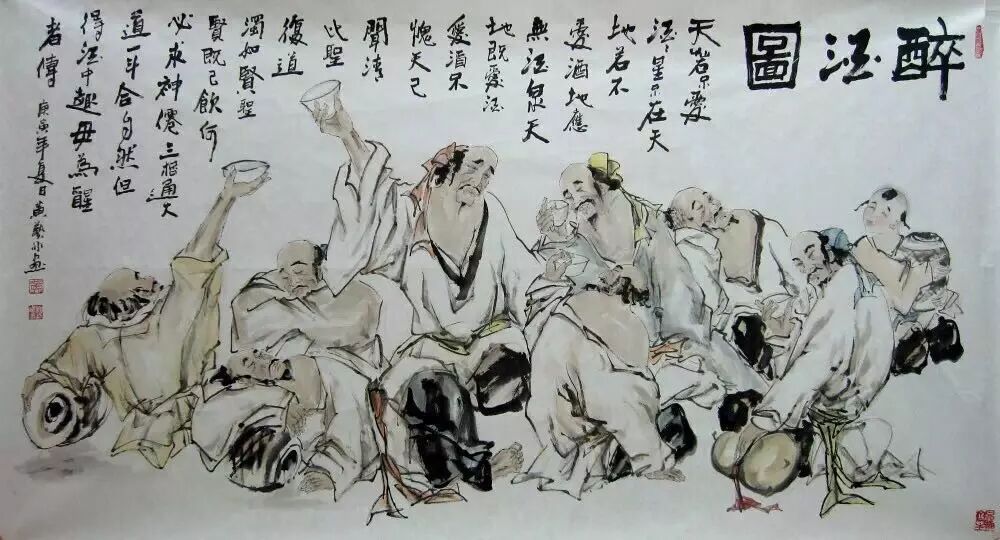 醉酒圖
天若不愛
酒〻星不在天
地若不
愛酒地應
無酒泉天
地既愛酒
愛酒不
愧天已
聞清
比聖
復道
濁如賢聖
賢既已飲何
必求神僊三杯通大
道一斗合自然但
得酒中趣毋為醒
者傳
庚寅年夏日